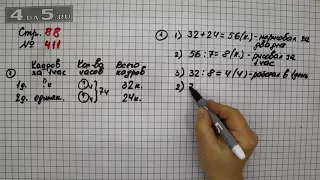 4DA5.RU
Стр. 88
№ 411
① Кадров за 1 час Кол-во часов Всего кадров
1д. ? к ? ч 32к.
2д. одинак. ? ч 24к.
7ч
① 1) 32 + 24 = 56 (к) - нарисовал за два дня
2) 56 : 7 = 8 (к.) - рисовал за 1 час
3) 32 : 8 = 4 (ч) - работал в 1 день